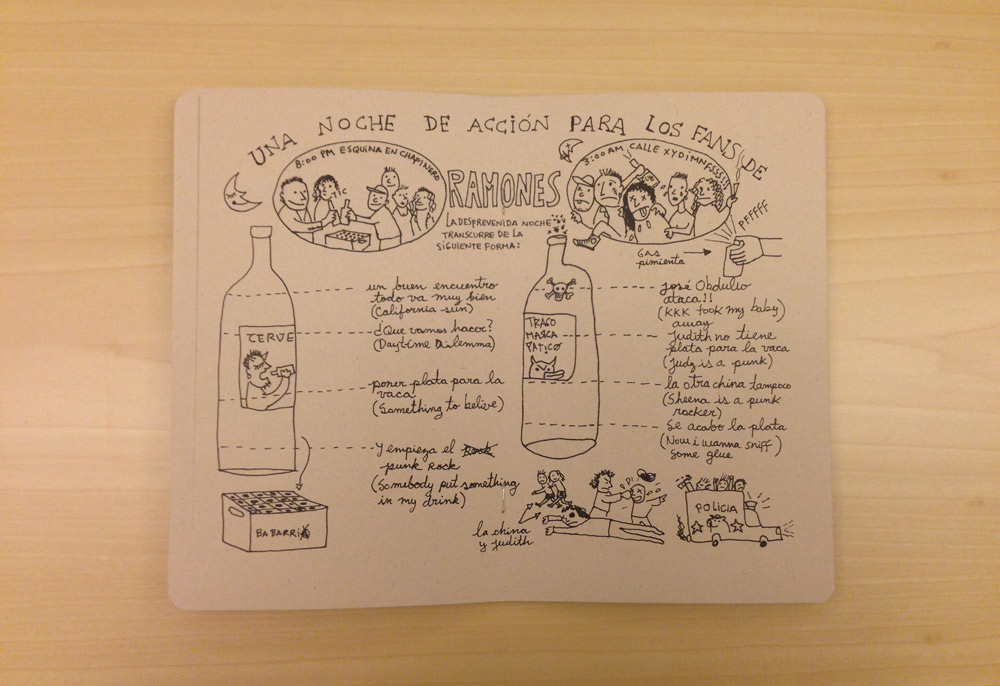 UNA NOCHE DE ACCIÓN PARA LOS FANS DE
RAMONES
LA DESPREVENIDA NOCHE
TRANSCURRE DE LA
SIGUIENTE FORMA:
8:00 PM ESQUINA EN CHAPINERO
TIC
CERVE
un buen encuentro
todo va muy bien
(California sun)
¿Que vamos hacer?
(Daytime Dilemma)
poner plata para la
vaca
(Something to belive)
Y empieza el Rock
punk Rock
(Somebody put something
in my drink)
BABARRIA
3:00 AM CALLE XYDIMNFSSSSS
PFFFFF
GAS
pimienta
TRAGO
MARCA
PATICO
José Obdulio
ataca!!
(KKK took my baby)
away
Judith no tiene
plata para la vaca
(Judy is a punk)
la otra china tampoco
(Sheena is a punk
rocker)
Se acabo la plata
(Now i wanna sniff)
Some glue
la china
y judith
POLICIA